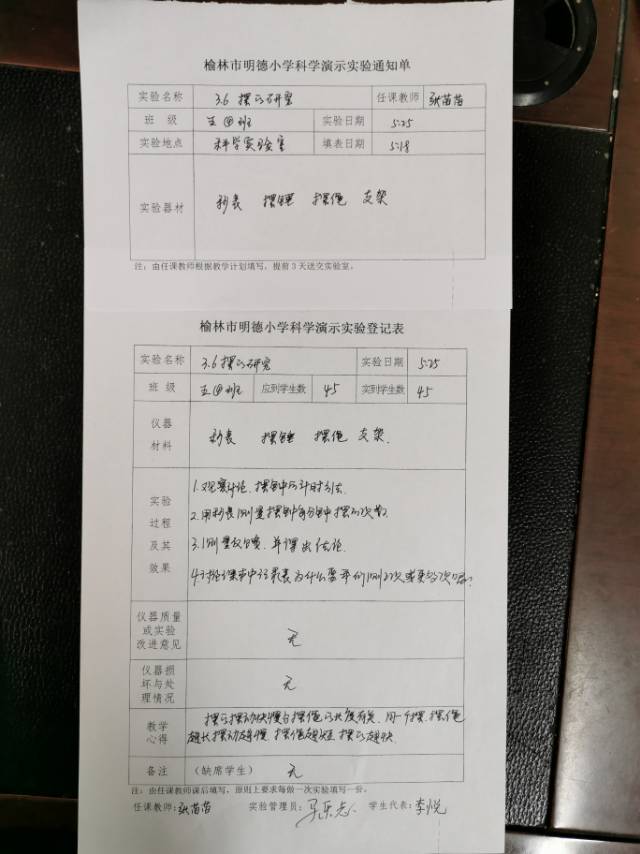 榆林市明德小学科学演示实验通知单
实验名称 3.6 摆的研究 任课教师 张苗苗
班 级 五④班 实验日期 5.25
实验地点 科学实验室 填表日期 5.18
实验器材 秒表 摆锤 摆绳 支架
注：由任课教师根据教学计划填写，提前3天送交实验室。
榆林市明德小学科学演示实验登记表
实验名称 3.6 摆的研究 实验日期 5.25
班 级 五④班 应到学生数 45 实到学生数 45
仪器
材料
秒表 摆锤 摆绳 支架.
实验
过程
及其
效果
1.观察讨论，摆钟的计时方法.
2.用秒表测量摆钟每分钟摆的次数
3.测量及分享，并得出结论.
4.讨论:课本中记录表为什么要我们测2次或更多次呢?
仪器质量
或实验
改进意见
无
仪器损
坏与处
理情况
无
教学
心得
摆的摆动快慢与摆绳的长度有关，同一个摆，摆绳
越长摆动越慢，摆绳越短摆的越快.
备注 (缺席学生) 无
注：由任课教师课后填写，原则上要求每做一次实验填写一份。
任课教师:张苗苗 实验管理员: 学生代表:李悦